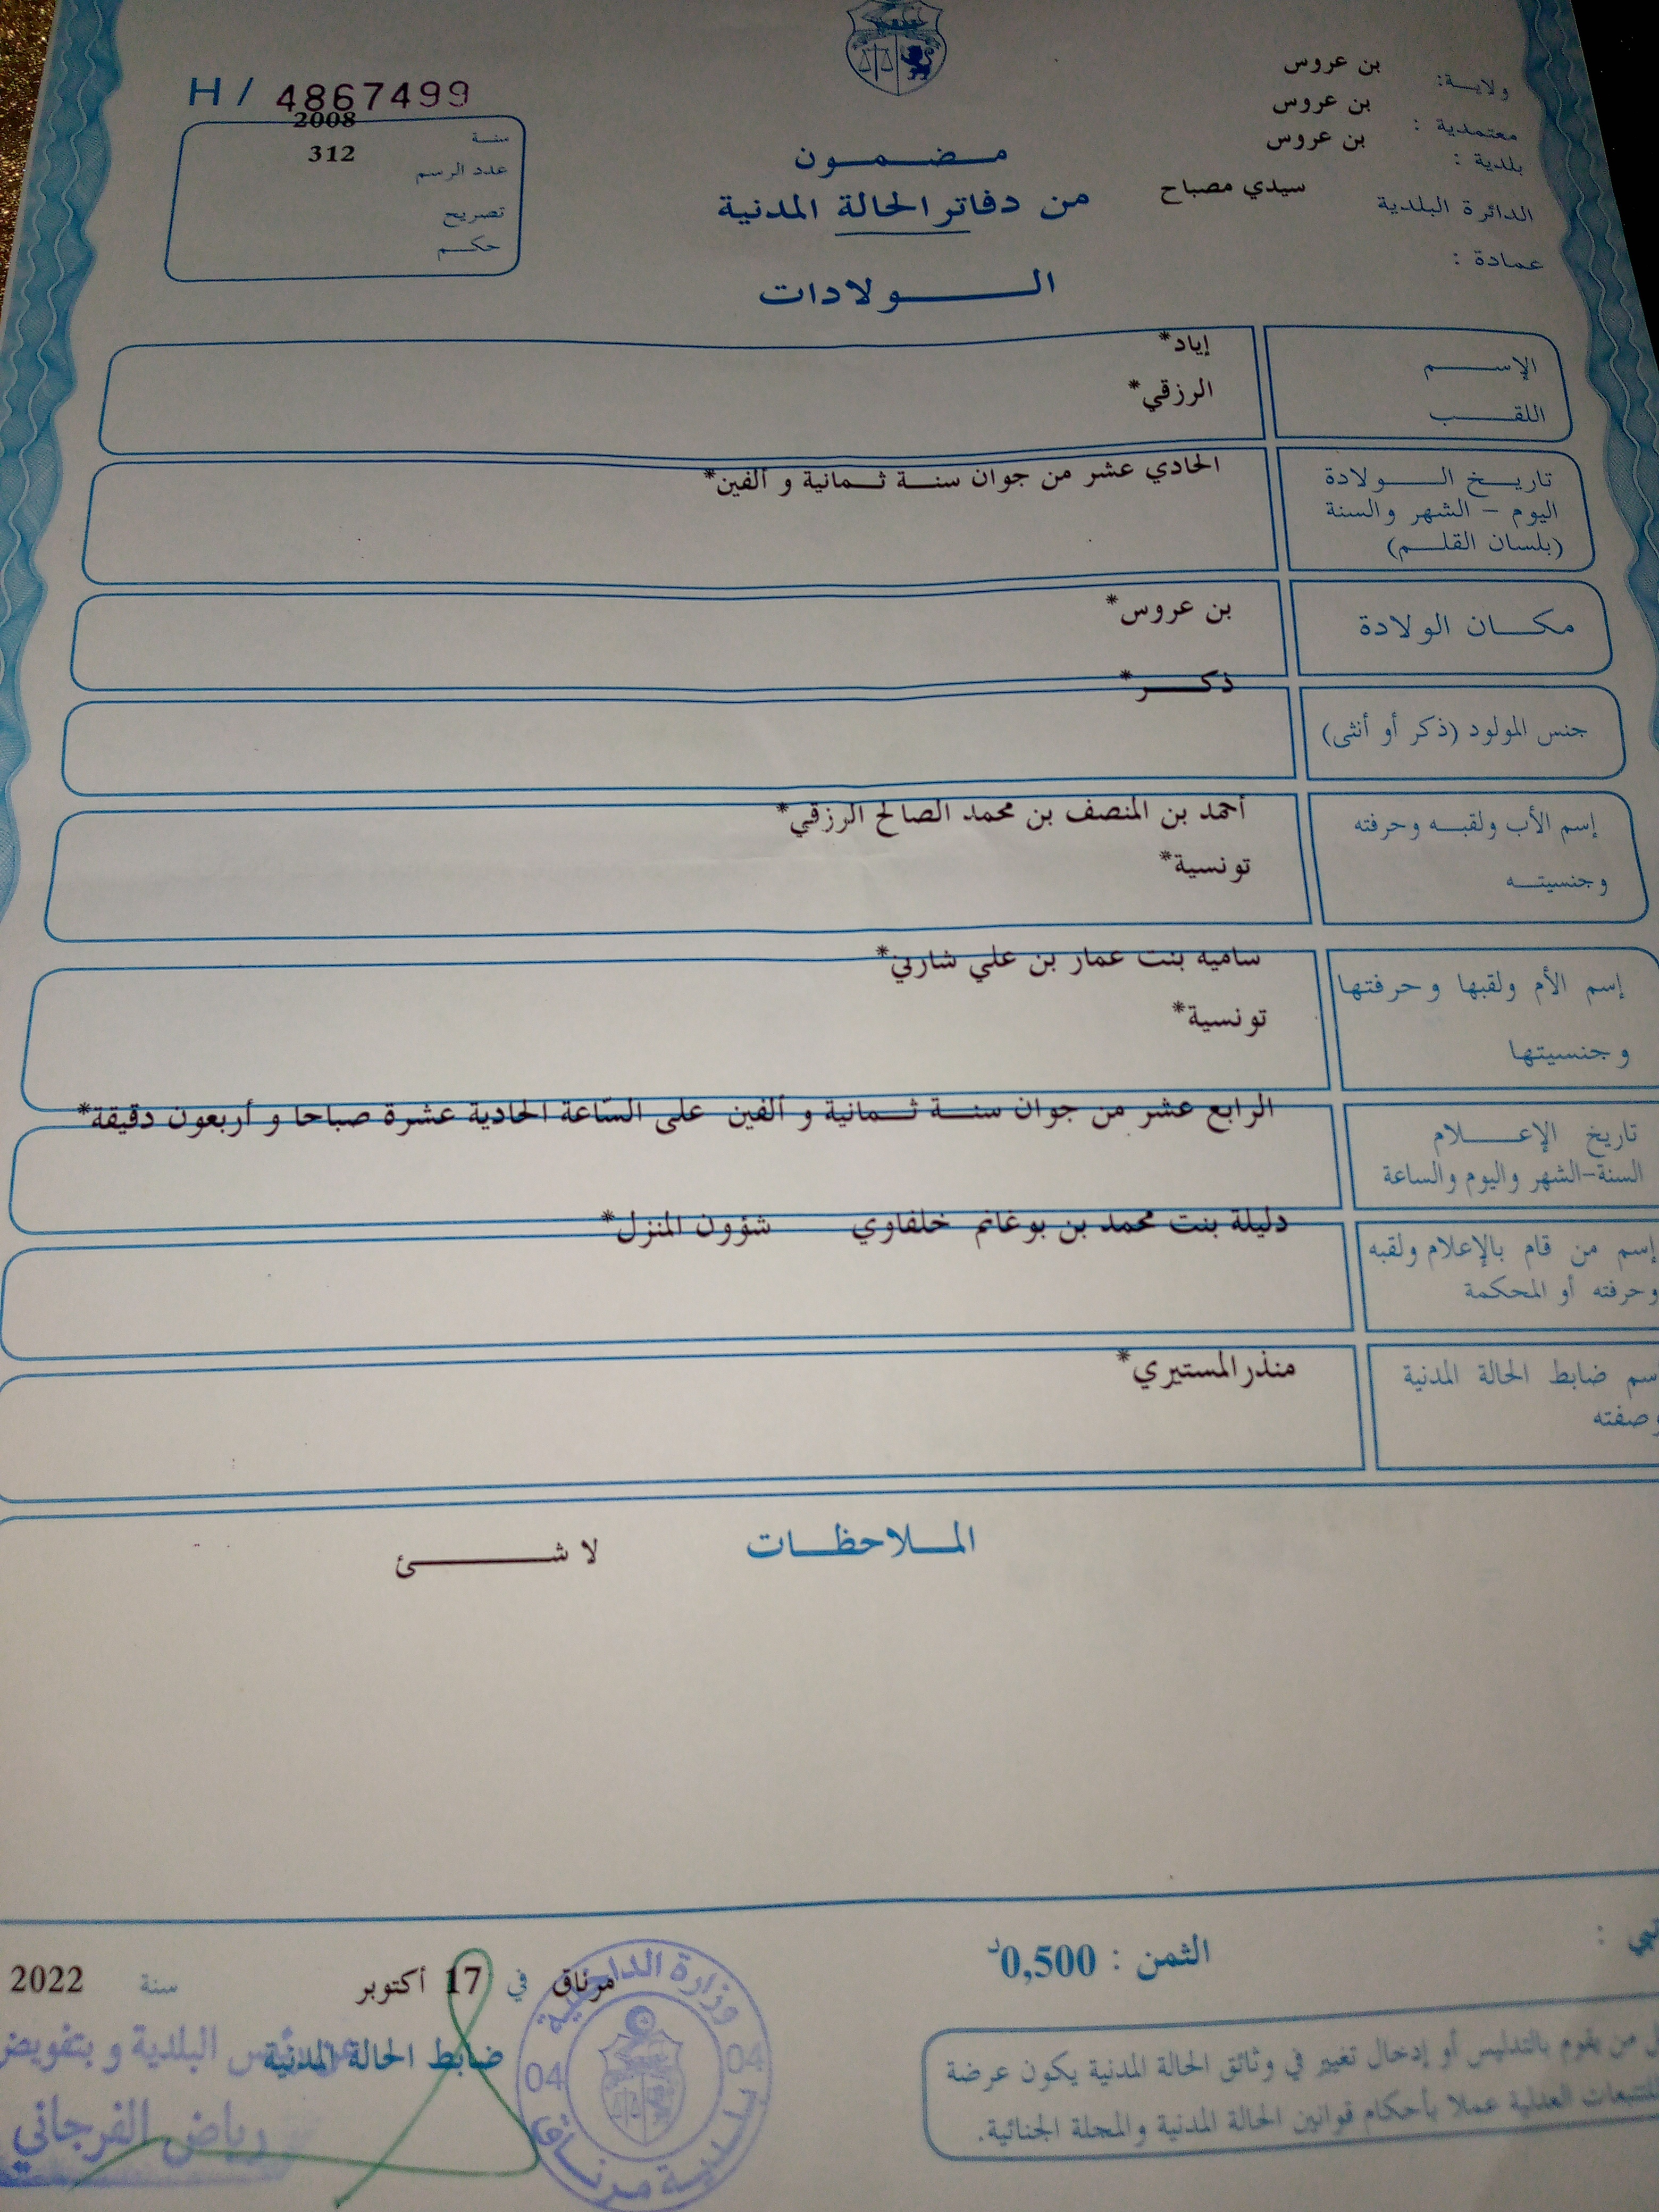 ولايـــة: بن عروس
معتمدية : بن عروس
بلدية : بن عروس
الدائرة البلدية سيدي مصباح
عمادة :
H / 4867499
سنة 2008
عدد الرسم 312
تصريح
حكم
مضمون
من دفاتر الحالة المدنية
الولادات
الإسم إياد*
اللقب الرزقي*
تاريخ الولادة الحادي عشر من جوان سنة ثمانية و ألفين*
اليوم - الشهر والسنة
(بلسان القلم)
مكان الولادة بن عروس*
جنس المولود (ذكر أو أنثى) ذكر*
إسم الأب ولقبه وحرفته أحمد بن المنصف بن محمد الصالح الرزقي*
وجنسيته تونسية*
إسم الأم ولقبها وحرفتها ساميه بنت عمار بن علي شاربي*
وجنسيتها تونسية*
تاريخ الإعلام الرابع عشر من جوان سنة ثمانية و ألفين على السّاعة الحادية عشرة صباحا و أربعون دقيقة*
السنة-الشهر واليوم والساعة
إسم من قام بالإعلام ولقبه دليلة بنت محمد بن بوغانم خلفاوي شؤون المنزل*
وحرفته أو المحكمة
سم ضابط الحالة المدنية منذر المستيري*
وصفته
الملاحظات لا شئ
الثمن : 0,500د
مرناق في 17 أكتوبر سنة 2022
ضابط الحالة المدنية
رئيس البلدية و بتفويض
رياض الفرجاني
وزارة الداخلية
04 04
بلدية مرناق
من يقوم بالتدليس أو إدخال تغيير في وثائق الحالة المدنية يكون عرضة
للتتبعات العدلية عملا بأحكام قوانين الحالة المدنية والمجلة الجنائية.